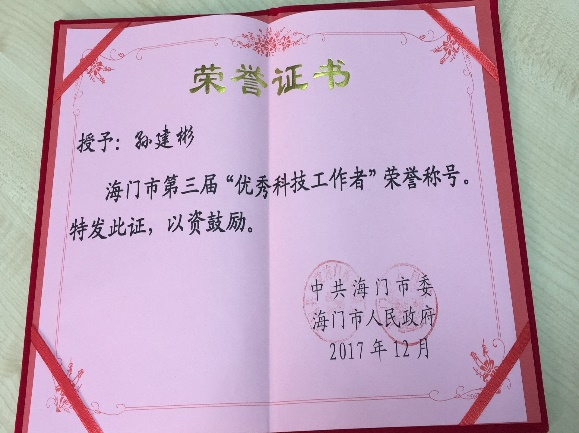 荣誉证书
授予：孙建彬
海门市第三届“优秀科技工作者”荣誉称号。
特发此证，以资鼓励。
中共海门市委
海门市人民政府
2017年12月